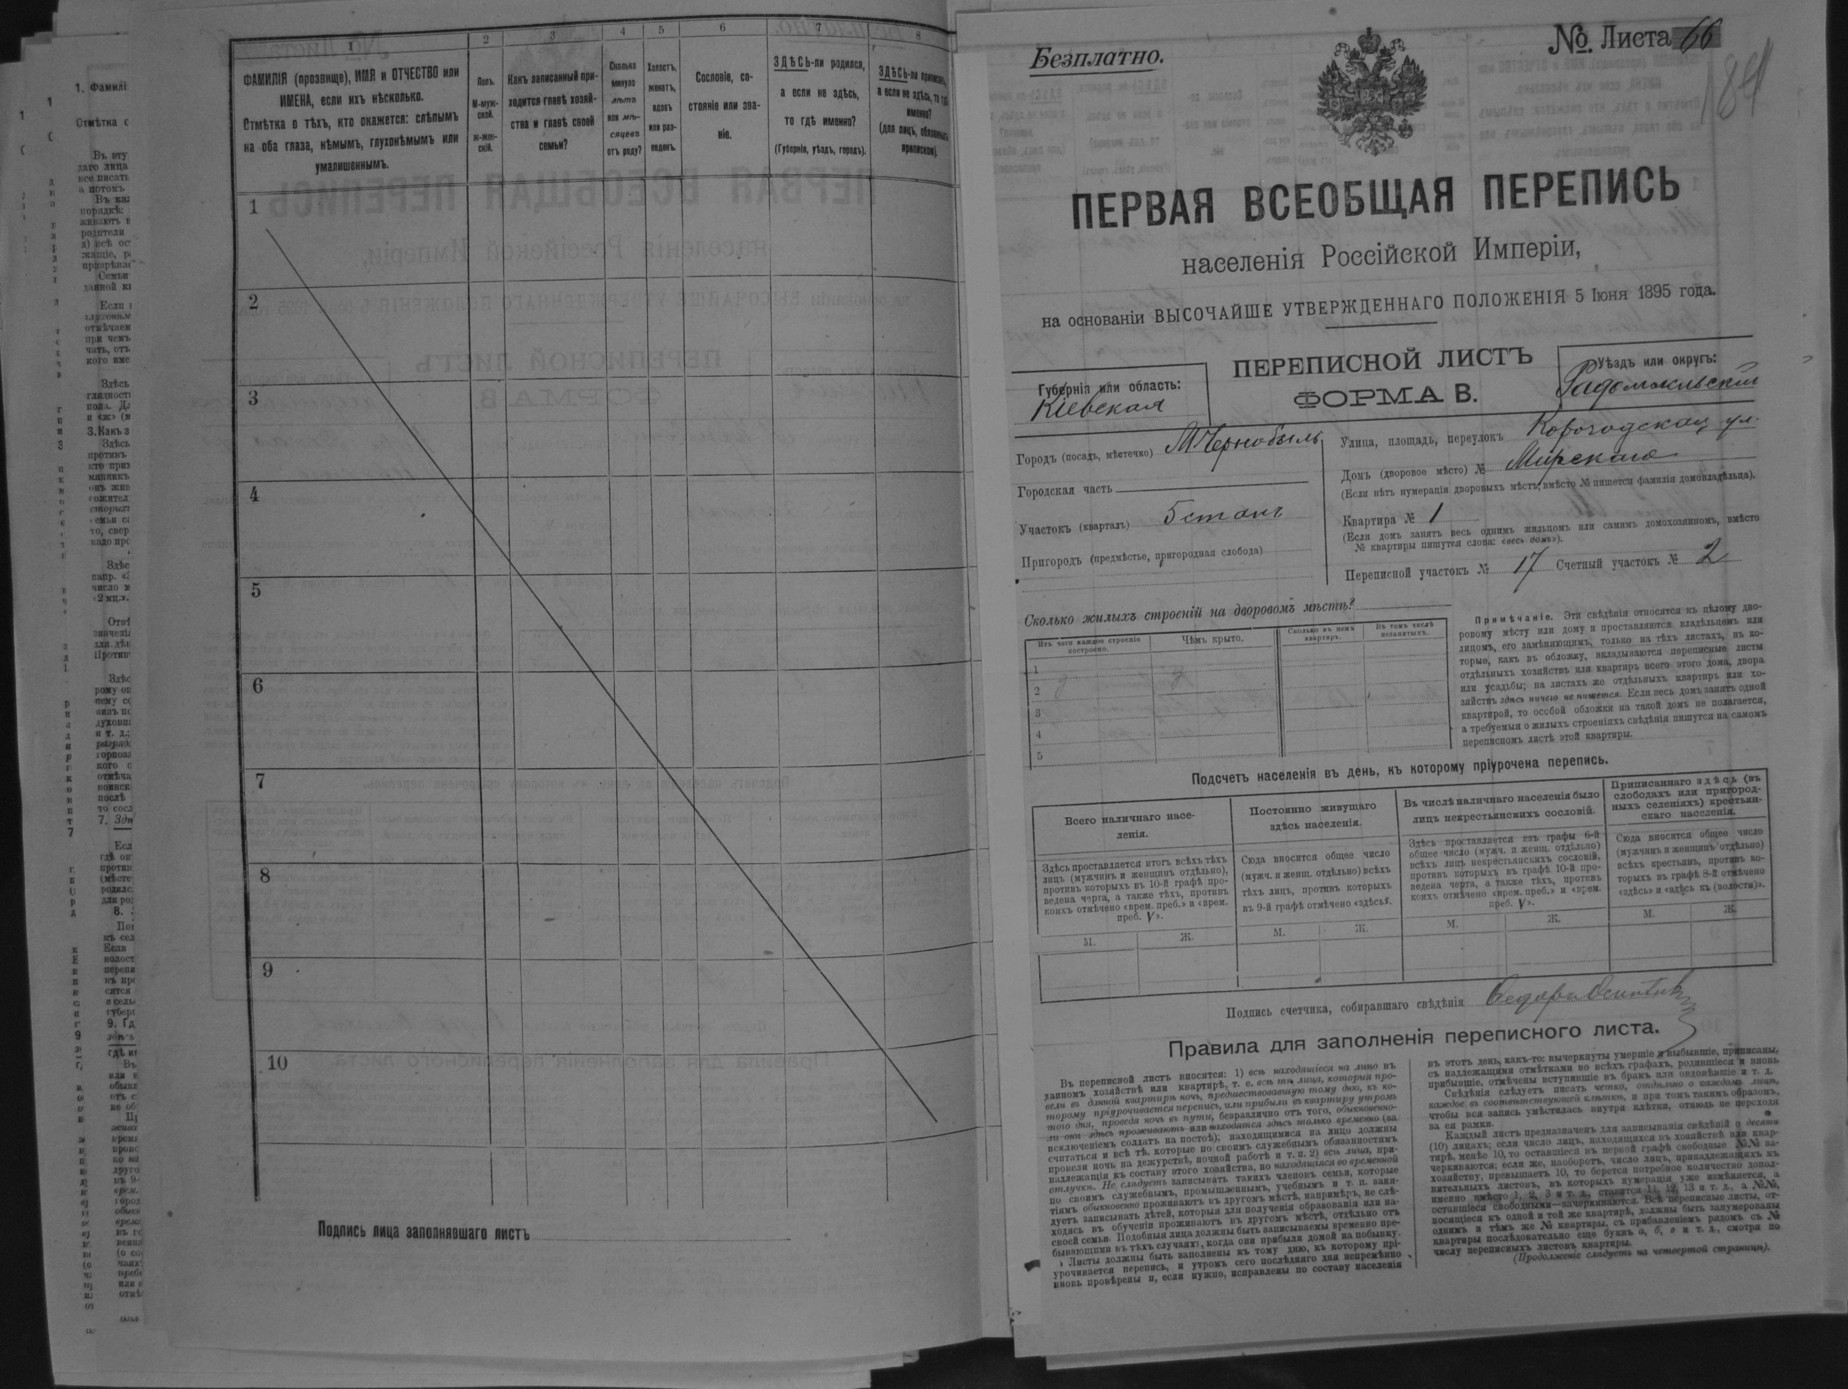 1
2
3
4
5
6
7
8
ФАМИЛІЯ (прозвище), ИМЯ и ОТЧЕСТВО или
ИМЕНА, если ихъ нѣсколько.
Отмѣтка о тѣхъ, кто окажется: слѣпымъ
на оба глаза, нѣмымъ, глухонѣмымъ или
умалишеннымъ.
Полъ.
М-муж-
ской.
ж-жен-
скій.
Какъ записанный при-
ходится главѣ хозяй-
ства и главѣ своей
семьи?
Сколько
минуло
лѣтъ
или мѣ-
сяцевъ
отъ роду?
Холостъ,
женатъ,
вдовъ
или раз-
веденъ.
Сословіе, со-
стояніе или зва-
ніе.
ЗДѢСЬ-ли родился,
а если не здѣсь,
то гдѣ именно?
(Губернія, уѣздъ, городъ).
ЗДѢСЬ-ли приписанъ,
а если не здѣсь, то гдѣ
именно?
(для лицъ, обязанныхъ
припиской).
1
2
3
4
5
6
7
8
9
10
Подпись лица заполнявшаго листъ
Безплатно.
№ Листа 66
ПЕРВАЯ ВСЕОБЩАЯ ПЕРЕПИСЬ
населенія Россійской Имперіи,
на основаніи ВЫСОЧАЙШЕ УТВЕРЖДЕННАГО ПОЛОЖЕНІЯ 5 Іюня 1895 года.
ПЕРЕПИСНОЙ ЛИСТЪ
ФОРМА В.
Губернія или область:
Кіевская
Уѣздъ или округъ:
Радомысльскій
Городъ (посадъ, мѣстечко) М Чернобыль
Городская часть
Участокъ (кварталъ) 5 станъ
Пригородъ (предмѣстье, пригородная слобода)
Улица, площадь, переулокъ Корогодская ул.
Домъ (дворовое мѣсто) № Мирскаго
(Если нѣтъ нумераціи дворовыхъ мѣстъ, вмѣсто № пишется фамилія домовладѣльца).
Квартира № 1
(Если домъ занятъ весь однимъ жильцомъ или самимъ домохозяиномъ, вмѣсто
№ квартиры пишутся слова: «весь домъ»).
Переписной участокъ № 17 Счетный участокъ № 2
Сколько жилыхъ строеній на дворовомъ мѣстѣ?
Изъ чего каждое строеніе
построено.
Чѣмъ крыто.
Сколько въ немъ
квартиръ.
Въ томъ числѣ
незанятыхъ.
1
2
3
4
5
Примѣчаніе. Эти свѣдѣнія относятся къ цѣлому дво-
ровому мѣсту или дому и проставляются владѣльцемъ или
лицомъ, его замѣняющимъ, только на тѣхъ листахъ, въ ко-
торые, какъ въ обложку, вкладываются переписные листы
отдѣльныхъ хозяйствъ или квартиръ всего этого дома, двора
или усадьбы; на листахъ же отдѣльныхъ квартиръ или хо-
зяйствъ здѣсь ничего не пишется. Если весь домъ занятъ одной
квартирой, то особой обложки на такой домъ не полагается,
а требуемыя о жилыхъ строеніяхъ свѣдѣнія пишутся на самомъ
переписномъ листѣ этой квартиры.
Подсчетъ населенія въ день, къ которому пріурочена перепись.
Всего наличнаго насе-
ленія.
Постоянно живущаго
здѣсь населенія.
Въ числѣ наличнаго населенія было
лицъ некрестьянскихъ сословій.
Приписаннаго здѣсь (въ
слободахъ или пригород-
ныхъ селеніяхъ) крестьян-
скаго населенія.
Здѣсь проставляется итогъ всѣхъ тѣхъ
лицъ (мужчинъ и женщинъ отдѣльно),
противъ которыхъ въ 10-й графѣ про-
ведена черта, а также тѣхъ, противъ
коихъ отмѣчено «врем. преб.» и «врем.
преб. V».
Сюда вносится общее число
(мужч. и женщ. отдѣльно) всѣхъ
тѣхъ лицъ, противъ которыхъ
въ 9-й графѣ отмѣчено «здѣсь».
Здѣсь проставляется изъ графы 6-й
общее число (мужч. и женщ. отдѣльно)
всѣхъ лицъ некрестьянскихъ сословій,
противъ которыхъ въ графѣ 10-й про-
ведена черта, а также тѣхъ, противъ
коихъ отмѣчено «врем. преб.» и «врем.
преб. V».
Сюда вносится общее число
(мужчинъ и женщинъ отдѣльно)
всѣхъ крестьянъ, противъ ко-
торыхъ въ графѣ 8-й отмѣчено
«здѣсь» и «здѣсь къ (волости)».
М. Ж. М. Ж. М. Ж. М. Ж.
Подпись счетчика, собиравшаго свѣдѣнія
Правила для заполненія переписного листа.
Въ переписной листъ вносятся: 1) всѣ находящіеся на лицо въ
данномъ хозяйствѣ или квартирѣ, т. е. всѣ тѣ лица, которыя про-
вели въ данной квартирѣ ночь, предшествовавшую тому дню, къ ко-
торому пріурочивается перепись, или прибыли въ квартиру утромъ
того дня, проведя ночь въ пути, безразлично отъ того, обыкновенно-
ли они здѣсь проживаютъ или находятся здѣсь только временно (за
исключеніемъ солдатъ на постоѣ); находящимися на лицо должны
считаться и всѣ тѣ, которые по своимъ служебнымъ обязанностямъ
провели ночь на дежурствѣ, ночной работѣ и т. п. 2) всѣ лица, при-
надлежащія къ составу этого хозяйства, но находящіяся во временной
отлучкѣ. Не слѣдуетъ записывать такихъ членовъ семьи, которые
по своимъ служебнымъ, промышленнымъ, учебнымъ и т. п. заня-
тіямъ обыкновенно проживаютъ въ другомъ мѣстѣ, напримѣръ, не слѣ-
дуетъ записывать дѣтей, которыя для полученія образованія или на-
ходясь въ обученіи проживаютъ въ другомъ мѣстѣ, отдѣльно отъ
своей семьи. Подобныя лица должны быть записываемы временно пре-
бывающими въ тѣхъ случаяхъ, когда они прибыли домой на побывку.
Листы должны быть заполнены къ тому дню, къ которому прі-
урочивается перепись, и утромъ сего послѣдняго дня непремѣнно
вновь провѣрены и, если нужно, исправлены по составу населенія
въ этотъ день, какъ-то: вычеркнуты умершіе и выбывшіе, приписаны,
съ надлежащими отмѣтками во всѣхъ графахъ, родившіеся и вновь
прибывшіе, отмѣчены вступившіе въ бракъ или овдовѣвшіе и т. д.
Свѣдѣнія слѣдуетъ писать четко, отдѣльно о каждомъ лицѣ,
каждое въ соотвѣтствующей клѣткѣ, и при томъ такимъ образомъ,
чтобы вся запись умѣстилась внутри клѣтки, отнюдь не переходя
за ея рамки.
Каждый листъ предназначенъ для записыванія свѣдѣній о десяти
(10) лицахъ; если число лицъ, находящихся въ хозяйствѣ или квар-
тирѣ, менѣе 10, то оставшіеся въ первой графѣ свободные №№ за-
черкиваются; если же, наоборотъ, число лицъ, принадлежащихъ къ
хозяйству, превышаетъ 10, то берется потребное количество допол-
нительныхъ листовъ, въ которыхъ нумерація уже измѣняется, а
именно вмѣсто 1, 2, 3 и т. д., ставится 11, 12, 13 и т. д., а №№,
оставшіеся свободными—зачеркиваются. Всѣ переписные листы, от-
носящіеся къ одной и той же квартирѣ, должны быть занумерованы
однимъ и тѣмъ же № квартиры, съ прибавленіемъ рядомъ съ №
квартиры послѣдовательно еще буквъ а, б, в и т. д., смотря по
числу переписныхъ листовъ квартиры.
(Продолженіе слѣдуетъ на четвертой страницѣ).